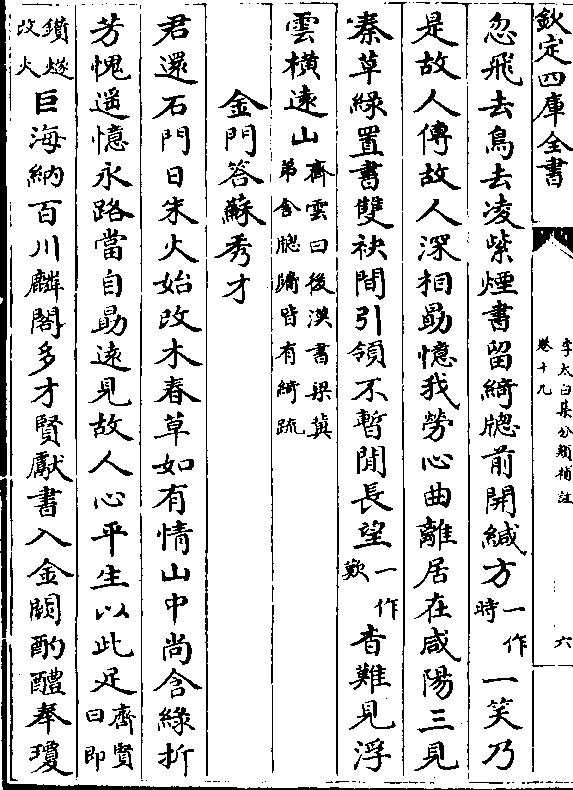 欽定四庫全書
李太白集分類補註
卷十九
六
忽飛去鳥去凌紫煙書留綺牕前開緘方一作時一笑乃
是故人傳故人深相勗憶我勞心曲離居在咸陽三見
秦草綠置書雙袂間引領不暫閒長望一作歎杳難見浮
雲橫遠山齊雲曰後漢書梁冀第舍牕牖皆有綺疏
金門答蘇秀才
君還石門日朱火始改木春草如有情山中尚含綠折
芳愧遥憶永路當自勗遠見故人心平生以此足齊賢曰即
鑽燧改火巨海納百川麟閣多才賢獻書入金闕酌醴奉瓊